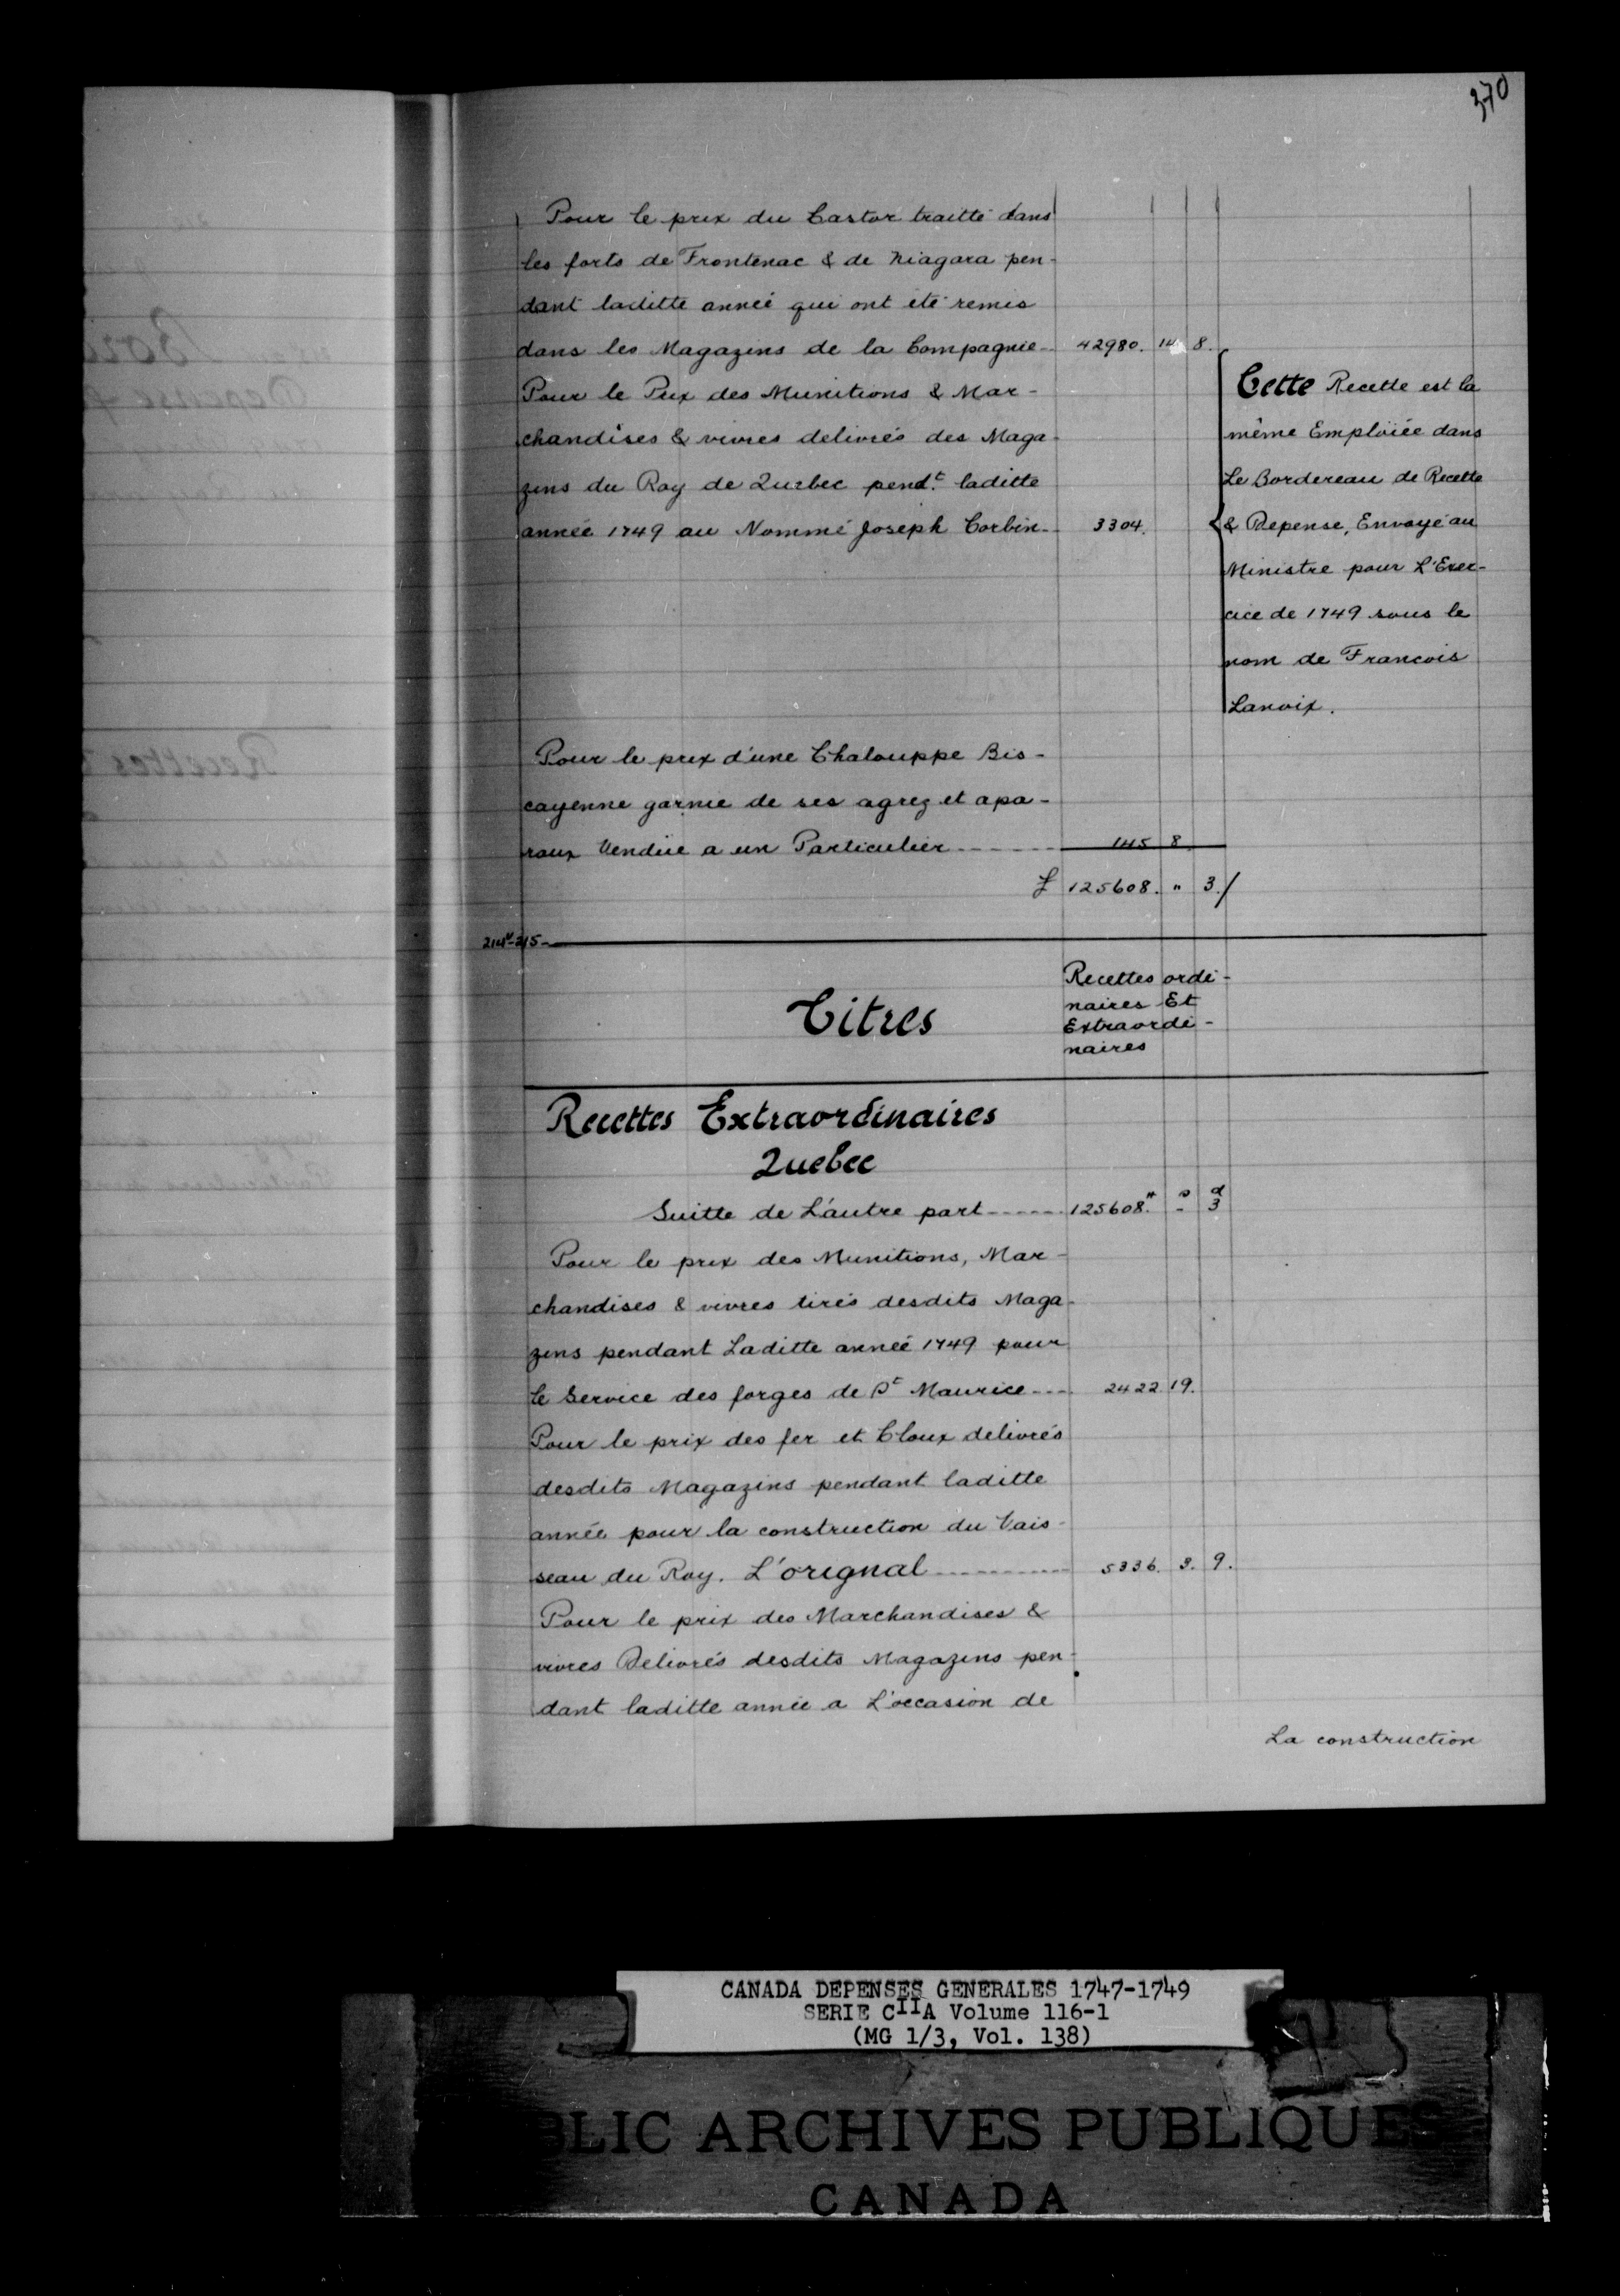 370
Pour le prix du Castor traitté dans
les forts de Frontenac & de Niagara pen-
dant laditte anneé qui ont été remis
dans les Magazins de la Compagnie-- 42980. 14 8.
Pour le Prix des Munitions & Mar-
chandises & vivres delivrés des Maga-
zins du Roy de Quebec pend.t laditte
année 1749 au Nommé Joseph Corbin-- 3304.
Cette Recette est la
même Emploïée dans
Le Bordereau de Recette
& Depense, Envoyé au
Ministre pour L'Exer-
cice de 1749 sous le
nom de Francois
Lanoix.
Pour le prix d'une Chalouppe Bis-
cayenne garnie de ses agrez et apa-
raux Vendüe a un Particulier------- 145 8
£ 125608. " 3./
214v-215-
Titres
Recettes ordi-
naires Et
Extraordi-
naires
Recettes Extraordinaires
Quebec
Suitte de L'autre part------ 125608.# s - d 3
Pour le prix des Munitions, Mar-
chandises & vivres tirés desdits Maga-
zins pendant Laditte anneé 1749 pour
le Service des forges de St Maurice---- 2422 19.
Pour le prix des fer et Cloux delivrés
desdits Magazins pendant laditte
année pour la construction du Vais-
seau du Roy. L'orignal------------ 5336. 3. 9.
Pour le prix des Marchandises &
vivres Delivrés desdits Magazins pen-
dant laditte année a L'occasion de
La construction
CANADA DEPENSES GENERALES 1747-1749
SERIE CIIA Volume 116-1
(MG 1/3, Vol. 138)
BLIC ARCHIVES PUBLIQUES
CANADA